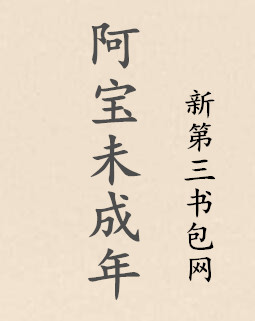 阿宝未成年
新第三书包网